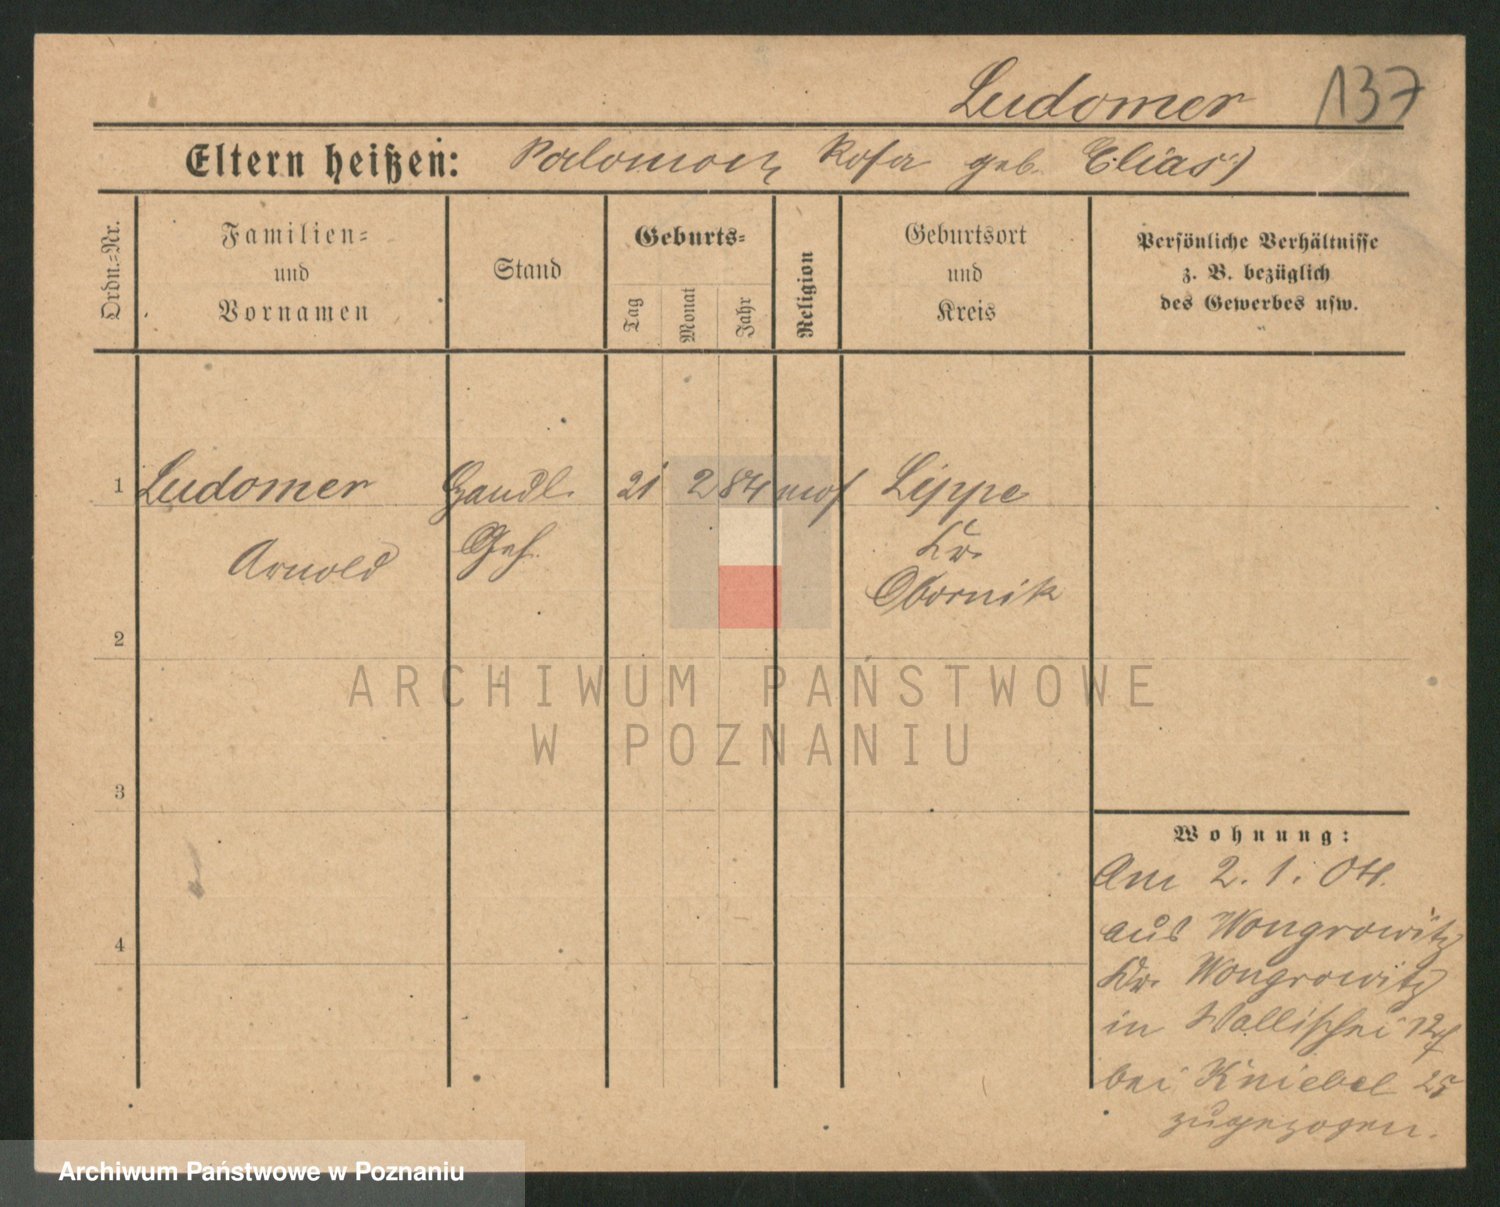 Ludomer 137
Eltern heißen: Salomon, Rosa geb. Elias)
Ordn.-Nr.
Familien-
und
Vornamen
Stand
Geburts-
Tag
Monat
Jahr
Religion
Geburtsort
und
Kreis
Persönliche Verhältnisse
z. B. bezüglich
des Gewerbes usw.
1 Ludomer Handl. 21 2 84 mos Lippe
Arnold Geh. Kr.
Obornik
2
ARCHIWUM PAŃSTWOWE
W POZNANIU
3
Wohnung:
Am 2. 1. 04.
aus Wongrowitz
4
Kr. Wongrowitz
in Wallischei
bei Kniebel 25
zugezogen.
Archiwum Państwowe w Poznaniu